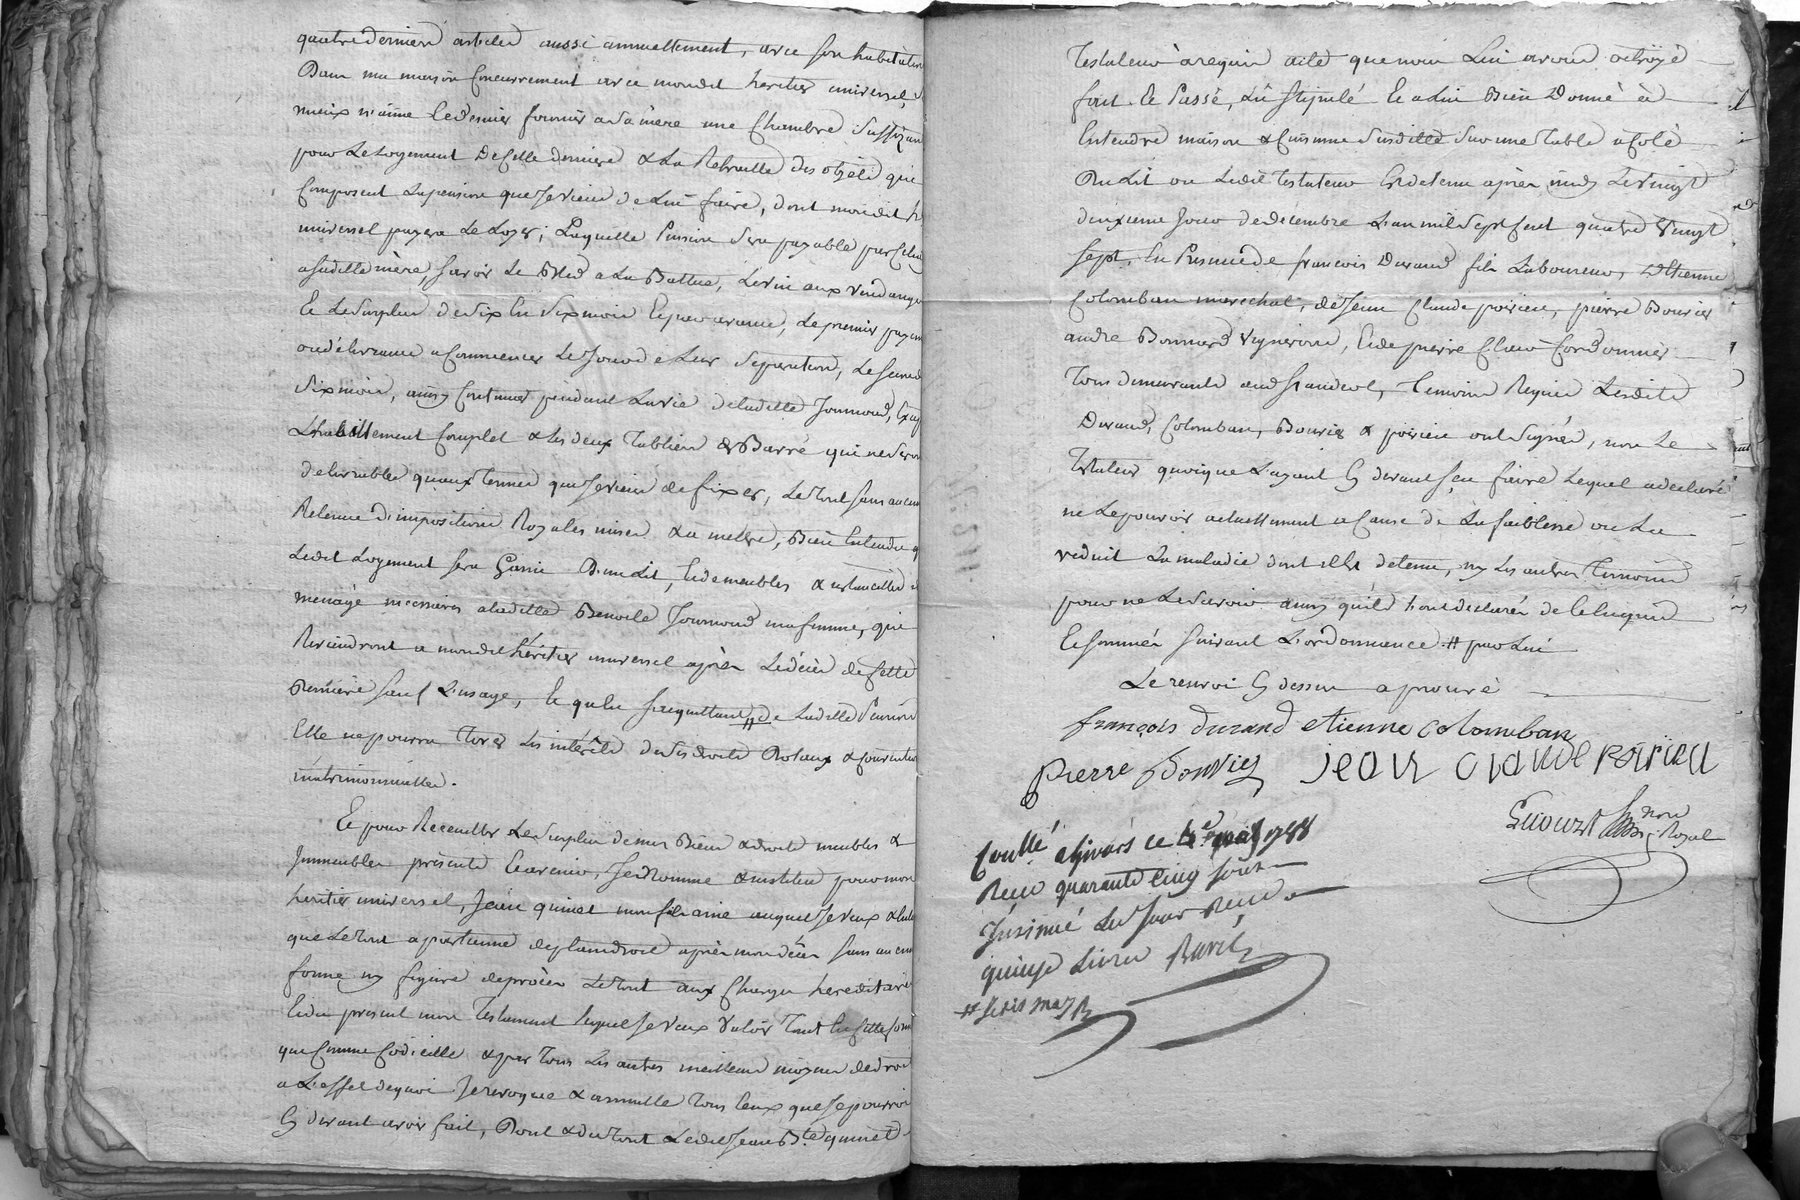 quatre derniers articles aussi annuellement, avec son habitation
Dans ma maison Concurrement avec mondit heritier universel, si
mieux n'aime Ce dernier fournir a sa mère une Chambre Suffizante
pour Le Logement De Cette derniere & La Retraitte des objets qui
Composent La pension que Je viens de Lui faire, dont mondit h
universel payera Le Loyer; Laquelle Pension Sera payable par Celui
a sadite mère, Savoir Le Bled a La Battue, Le vin aux vendanges
Et Le Surplus de Six En Six mois Et par avance, Le premier payem
ou délivrance a Commencer Le Jour de Leur Separation, Le Second
Six mois, ainsy Continuer pendant La vie de Ladite Journoud, Excep
L'habillement Complet & Les deux Tabliers & Barré qui ne Seront
delivrables qu'aux Termes que Je viens de fixer, Le Tout Sans aucune
Retenue D'impositions Royales mises & a mettre, Bien Entendu q
Ledit Logement Sera Garni D'un Lit, Et de meubles & ustancilles d
menage necessaires a Ladite Benoite Journoud ma femme, qui
Reviendront a mondit héritier universel après Le décès de Cette
derniere Sauf L'usage, Et qu'en s'acquittant # de Ladite Pension
Elle ne pourra Exiger Les intérêts de Ses droits Dotaux & Conventions
matrimonnielles.
Et pour Receuillir Le Surplus de mes Biens & droits meubles &
Immeubles présents Et avenir, Je Nomme & institue pour mon
héritier universel, Jean quinet mon fils ainé auquel Je veux & Ent
que Le Tout apartienne de plain droit après mon décès Sans aucune
forme ny figure de procès Le Tout aux Charges hereditaires
Et du present mon Testament Lequel Je veux Valoir Tant En Cette forme
que Comme Codicille & par Tous Les autres meilleurs moyens de droit
a L'effet de quoi Je revoque & annulle Tous Ceux que Je pourrois
Cy devant avoir fait, Dont & du Tout Ledit Jean Bte quinet
Testateur à requis acte que nous Lui avons octroyé
fait Et Passé, Lû Stipulé Et a Lui Bien Donné à
Entendre maison & Cuisine Susdite Sur une Table a Coté
Du Lit ou Ledit Testateur Est detenu après midy Le vingt
deuxieme Jour de decembre L'an mil Sept Cent quatre Vingt
Sept, En Presence de françois Durand fils Laboureur, d'Etienne
Colomban marechal, de Jean Claude poirieu, pierre Bouvier
andre Bonnard vignerons, Et de pierre Cordonnier
Tous demeurants audit Temoins Requis Lesdits
Durand, Colomban, Bouvier & poirieu ont Signés, non Le
Testateur quoique L'ayant Cy devant Sçu faire Lequel a declaré
ne Le pouvoir actuellement a Cause de La faiblesse ou La
reduit La maladie dont il Est detenu, ny Les autres Temoins
pour ne Le Savoir ainsy qu'ils L'ont déclarés de Ce Enquis
Et Sommés Suivant L'ordonnance. # par Lui
Le renvoi Cy dessus aprouvé
françois durand etienne colomban
pierre Bouvier jean claude poirieu
no.re Royal
Conllé a Givors ce 4e 1788
Recu quarante Cinq Sous
Insinué Led Jour Recu
quinze Livres Ravet